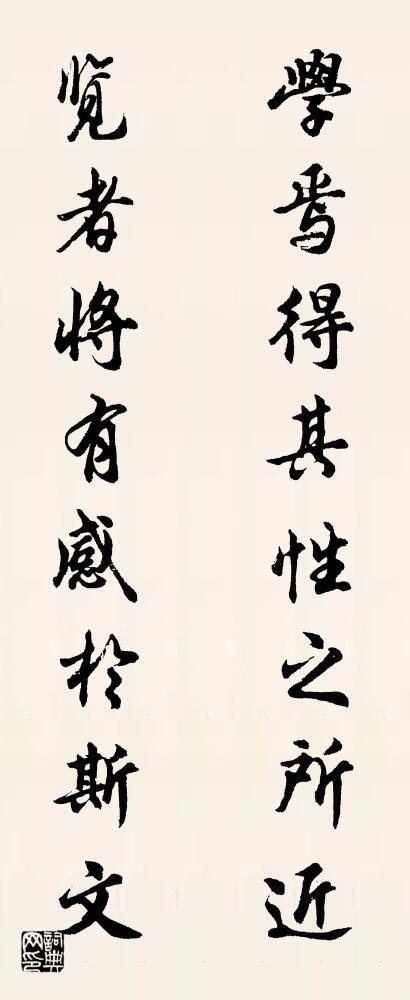 學焉得其性之所近
览者將有感於斯文